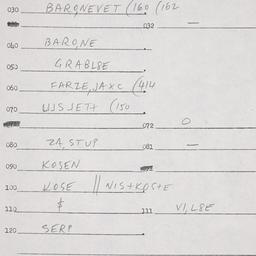 030 BARONEVET (160 (162
032 —
040 BARO,NE
050 GRABLSE
060 FARZE,JAXC (414
070 USJET+ (150
072 O
080 ZA,STUP 081 —
090 KOSEN
100 KOSE || NIS+KOS+E
110 $ 111 VI,LSE
120 SERP